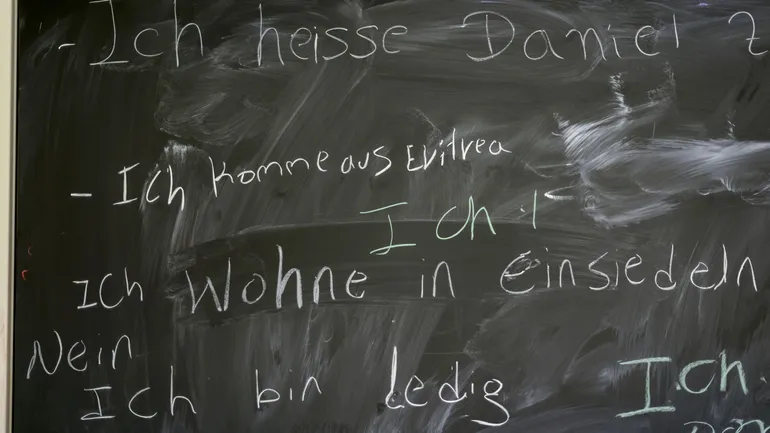 - Ich heisse Daniel Z
- Ich komme aus Eritrea
Ich
Ich Wohne in einsiedeln
Nein
Ich bin ledig
Ich.